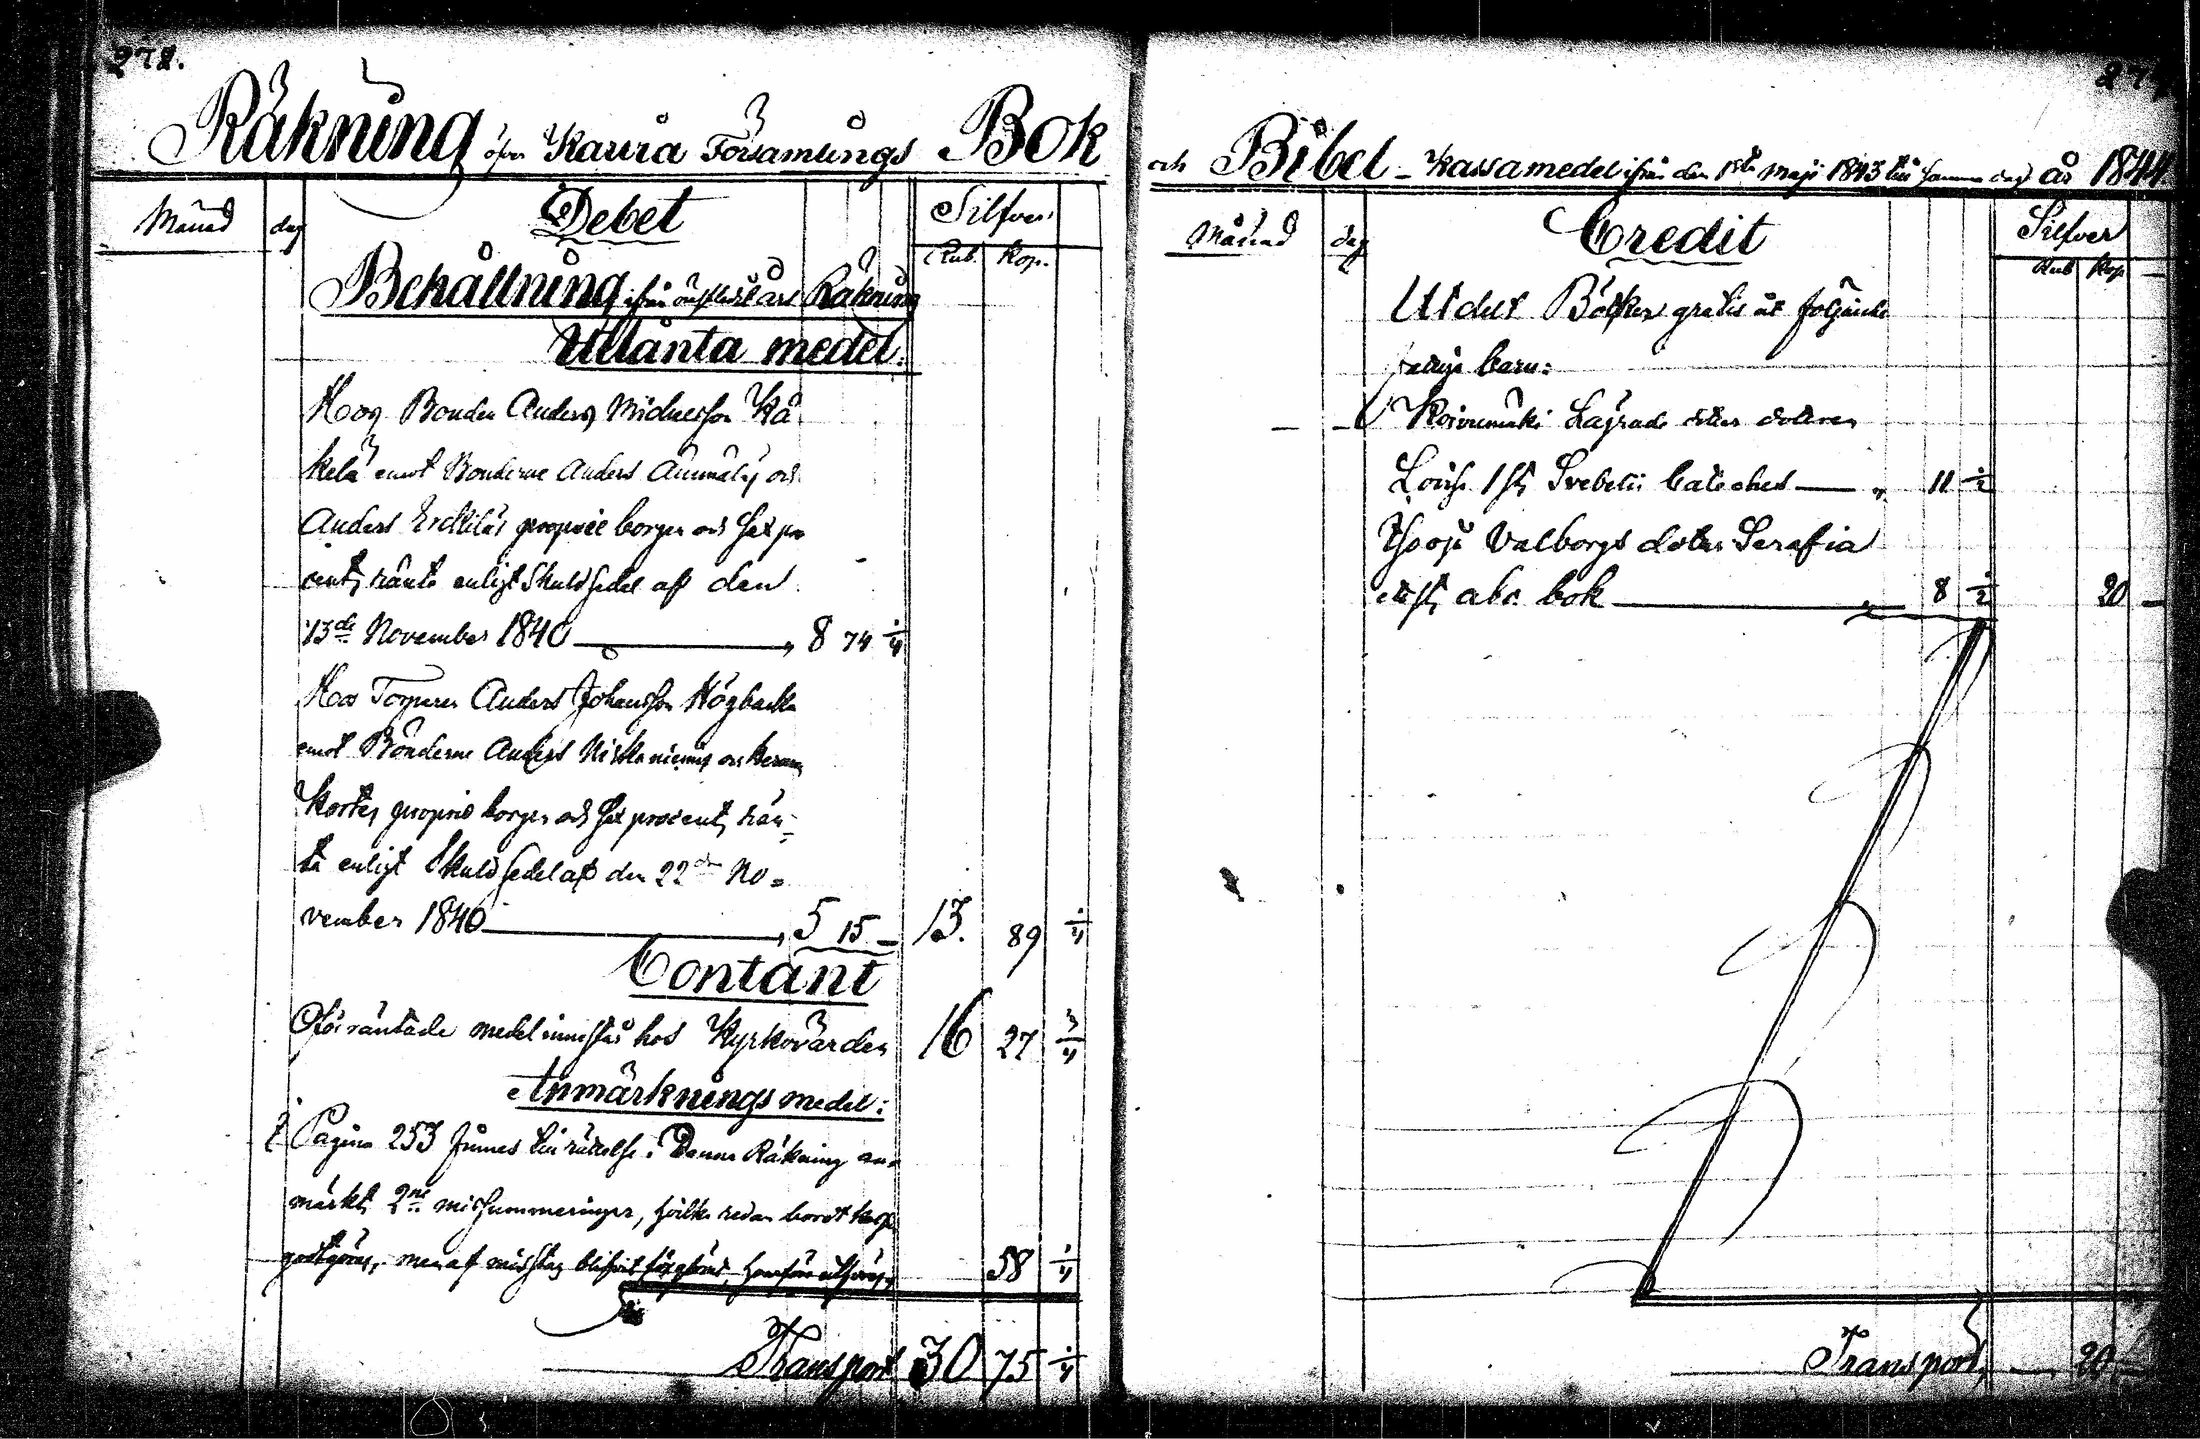 278.
Räkning öfver Kaura Församlings Bok
Månad dag Debet Silfver
Rub. Kop.
Behållning ifrån sistledit års Räkning
Utlånta medel.
Hoos Bonden Anders Michuelsson Kä
kelä emot Bönderne Anders Ammälä och
Anders Erkkiläs proprie borgen och sex pro
cents ränta enligt Skuldsedel af den
13de November 1840 — „ 8 74 1/4
Hoos Torparen Anders Johansson Högbacka
emot Bönderne Anders Niskaniemis och Herman
Kortes proprie borgen och sex procents rän-
ta enligt Skuldsedel af den 22dre No=
vember 1840 — „ 5 15 — 13. 89 1/4
Contant
Oförräntade medel innestår hos Kyrkovärden 16 27 3/4
Anmärknings medel:
Pagina 253 finnes till rättelse i Denne Räkning an-
märkt, 2ne missummeringar, hvilka redan bordt
godtgöras, men af misstag blifvit förglömd, 58 1/4
Transport 30 75 1/4
och Bibel - Kassamedel ifrån den 1sta Maji 1843 till samma dag år 1844
Månad dag Credit Silfver
Rub Kop
Utdelt Böcker gratis åt följande
fattige barn:
Koivumäki Lagrade doter
Lovisa 1 st. Svebelii Cateches — „ 11 1/2
Valborgs doter Serafia
ett st, abc bok — „ 8 1/2 20 —
Transport, — 20